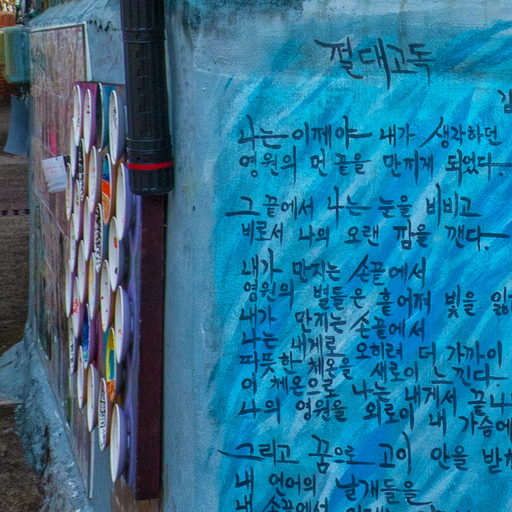 절대고독
김
나는 이제야 내가 생각하던
영원의 먼 끝을 만지게 되었다.
그 끝에서 나는 눈을 비비고
비로서 나의 오랜 잠을 깬다.
내가 만지는 손끝에서
영원의 별들은 흩어져 빛을 잃
내가 만지는 손끝에서
나는 내게로 오히려 더 가까이
따뜻한 체온을 새로이 느낀다.
이 체온으로 나는 내게서 끝나
나의 영원을 외로이 내 가슴에
그리고 꿈으로 고이 안을 받쳐
내 언어의 날개들을
내 손끝에서